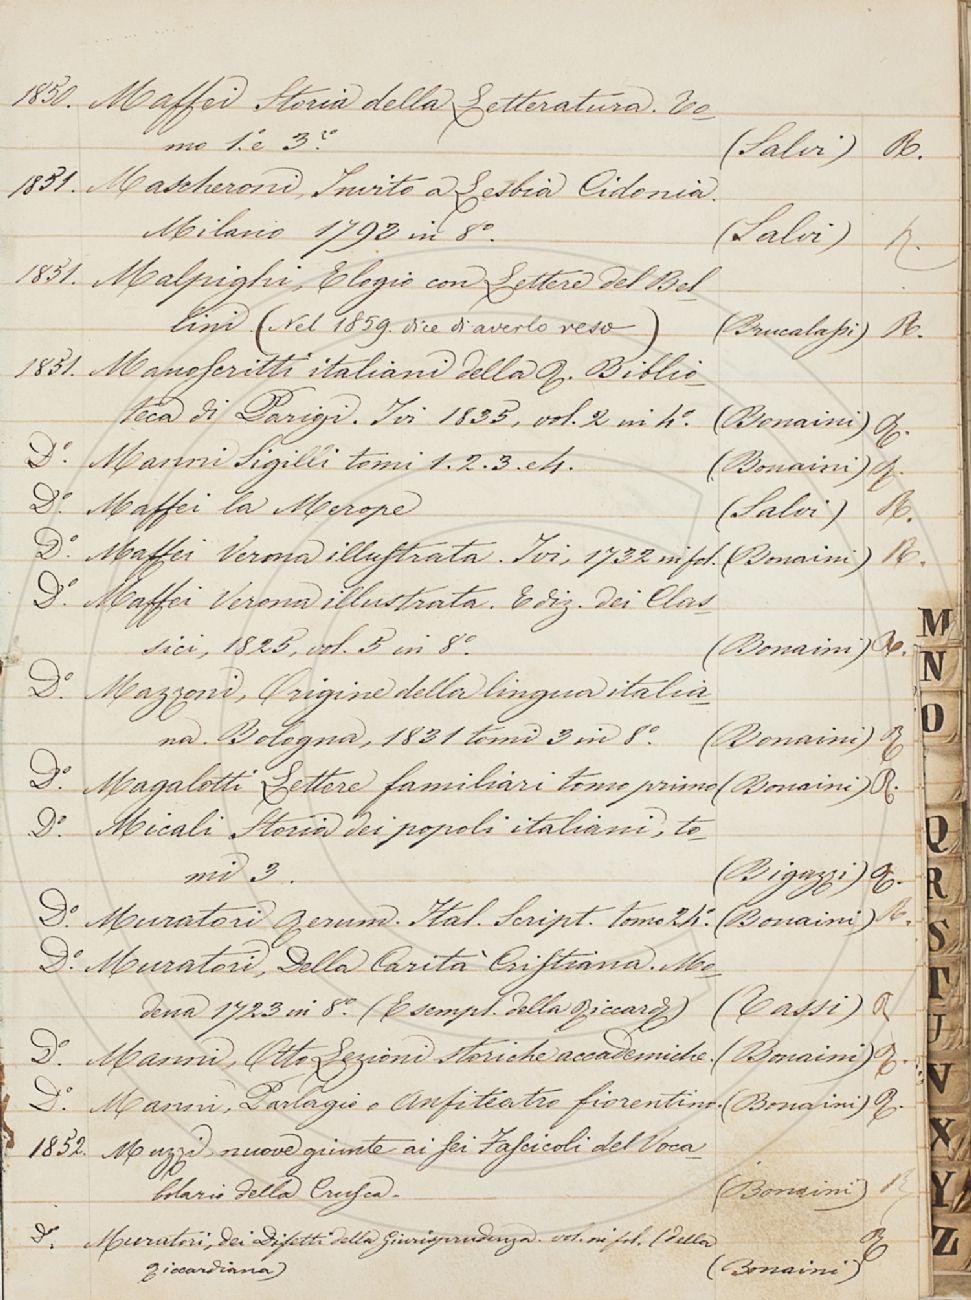 1850. Maffei Storia della Letteratura. To-
mo 1.º e 3.zo (Salvi) R.
1851. Mascheroni, Invito a Lesbia Cidonia.
Milano 1792 in 8º. (Salvi) R.
1851. Malpighi, Elogio con Lettere del Bel-
lini (Nel 1859. dice di averlo reso) (Brucalassi) R.
1851. Manoscritti italiani della R. Biblio-
teca di Parigi. Ivi 1835, vol. 2 in 4º. (Bonaini) R.
Dº. Manni Sigilli tomi 1. 2. 3. e 4. (Bonaini) R.
Dº. Maffei la Merope (Salvi) R.
Dº. Maffei Verona illustrata. Ivi, 1732 in fol. (Bonaini) R.
Dº. Maffei Verona illustrata. Ediz. dei Clas-
sici, 1825, vol. 5 in 8º. (Bonaini) R.
Dº. Mazzoni, Origine della lingua italia-
na. Bologna, 1831 tomi 3 in 8º. (Bonaini) R
Dº. Magalotti Lettere familiari tomo primo (Bonaini) R.
Dº. Micali Storia dei popoli italiani, to-
mi 3. (Bigazzi) R.
Dº. Muratori Rerum. Ital. Script. tomo 24º. (Bonaini) R.
Dº. Muratori, Della Carità Cristiana. Mo-
dena 1723 in 8º. (Esempl. della Riccard) (Tassi) R
Dº. Manni, Otto Lezioni storiche accademiche. (Bonaini) R.
Dº. Manni, Parlagio o Anfiteatro fiorentino. (Bonaini) R.
1852. Muzzi nuove giunte ai sei Fascicoli del Voca-
bolario della Crusca. (Bonaini) R
Dº. Muratori, dei Difetti della Giurisprudenza. vol. in fol. (della R
Riccardiana) (Bonaini)
M
N
O
Q
R
S
T
U
V
X
Y
Z